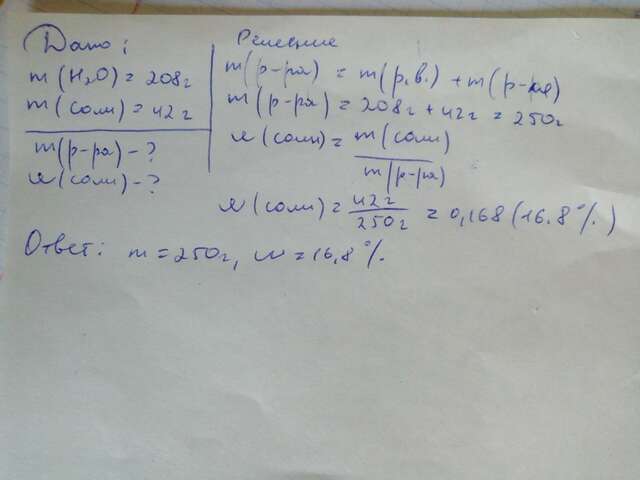 Дано:
m(H₂O) = 208г
m(соли) = 42г
m(р-ра) - ?
w(соли) - ?
Решение
m(р-ра) = m(р.в.) + m(р-ля)
m(р-ра) = 208г + 42г = 250г
w(соли) = m(соли)
m(р-ра)
w(соли) = 42г / 250г = 0,168 (16.8%)
Ответ: m = 250г, w = 16,8%.